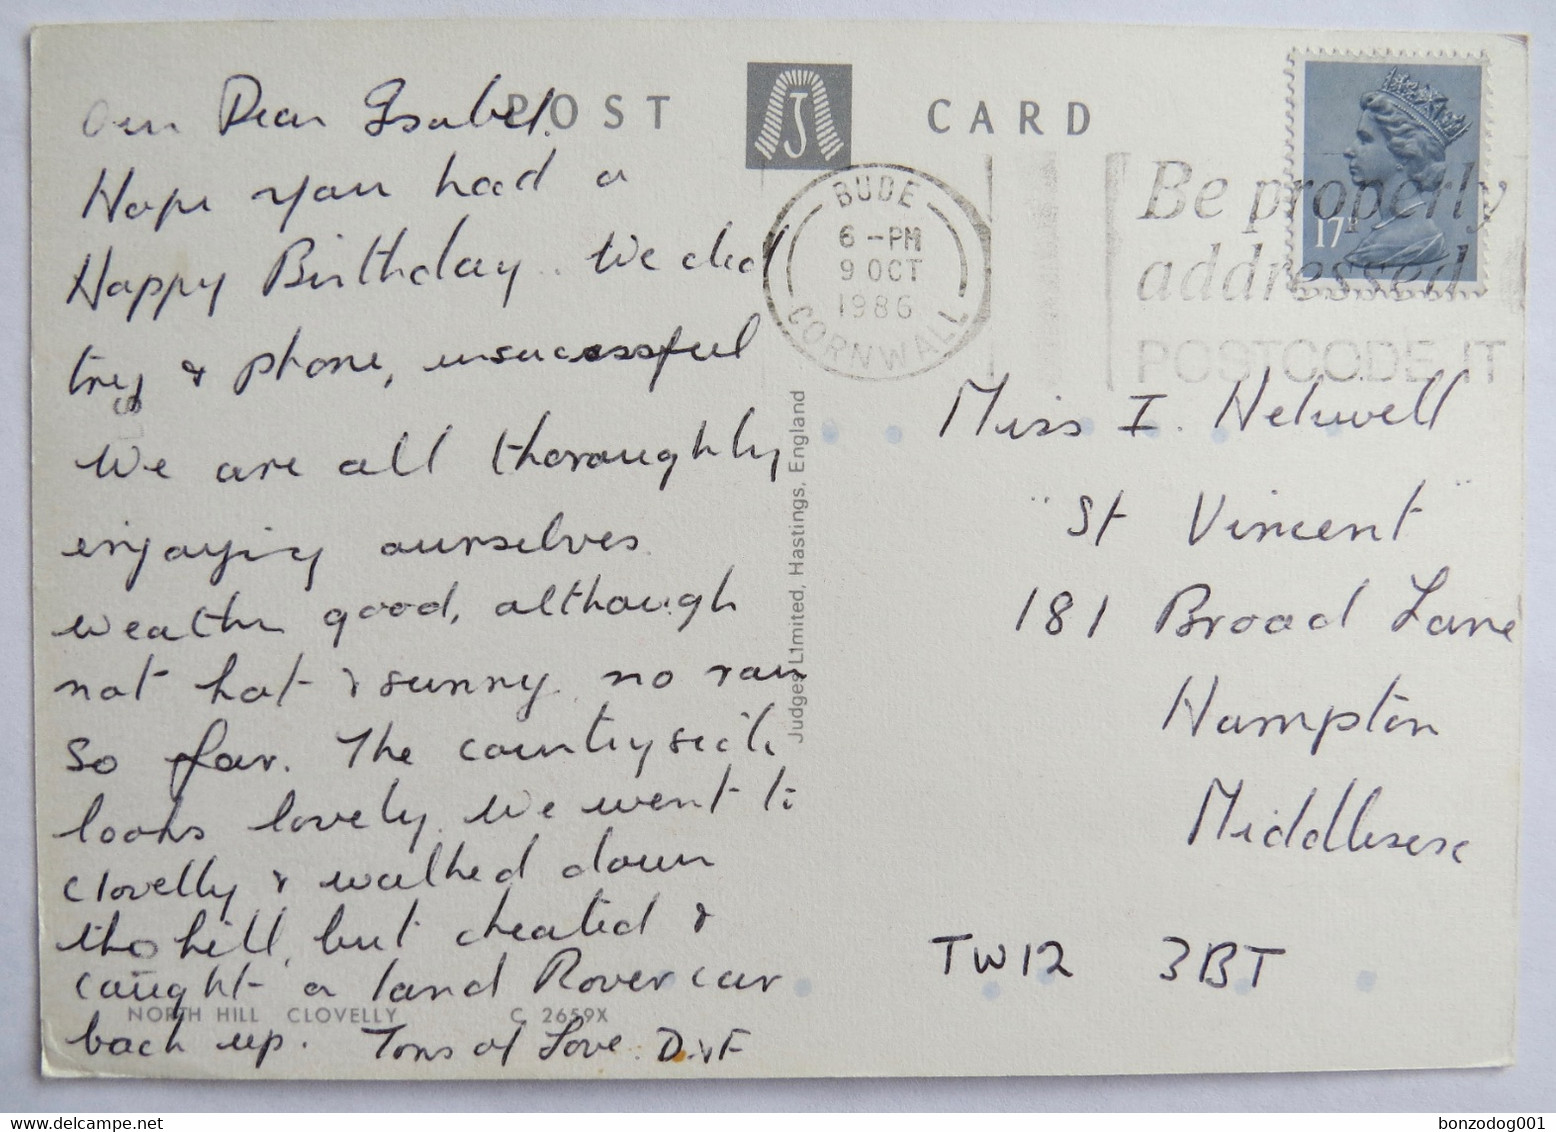 POST CARD
Our Dear Isabel.
Hope you had a
Happy Birthday. We did
try & phone, unsucessful
We are all thoroughly
enjoying ourselves
weather good, although
not hot & sunny. no rain
so far. The countryside
looks lovely. We went to
Clovelly & walked down
the hill, but cheated &
caught a land Rover car
back up. Tons of Love. D.
NORTH HILL CLOVELLY C 2659X
Judges Limited, Hastings, England
J
BUDE
6-PM
9 OCT
1986
CORNWALL
Be properly
addressed
POSTCODE IT
17
Miss I.
"St Vincent"
181 Broad Lane
Hampton
Middlesex
TW12 3BT
bonzodog001